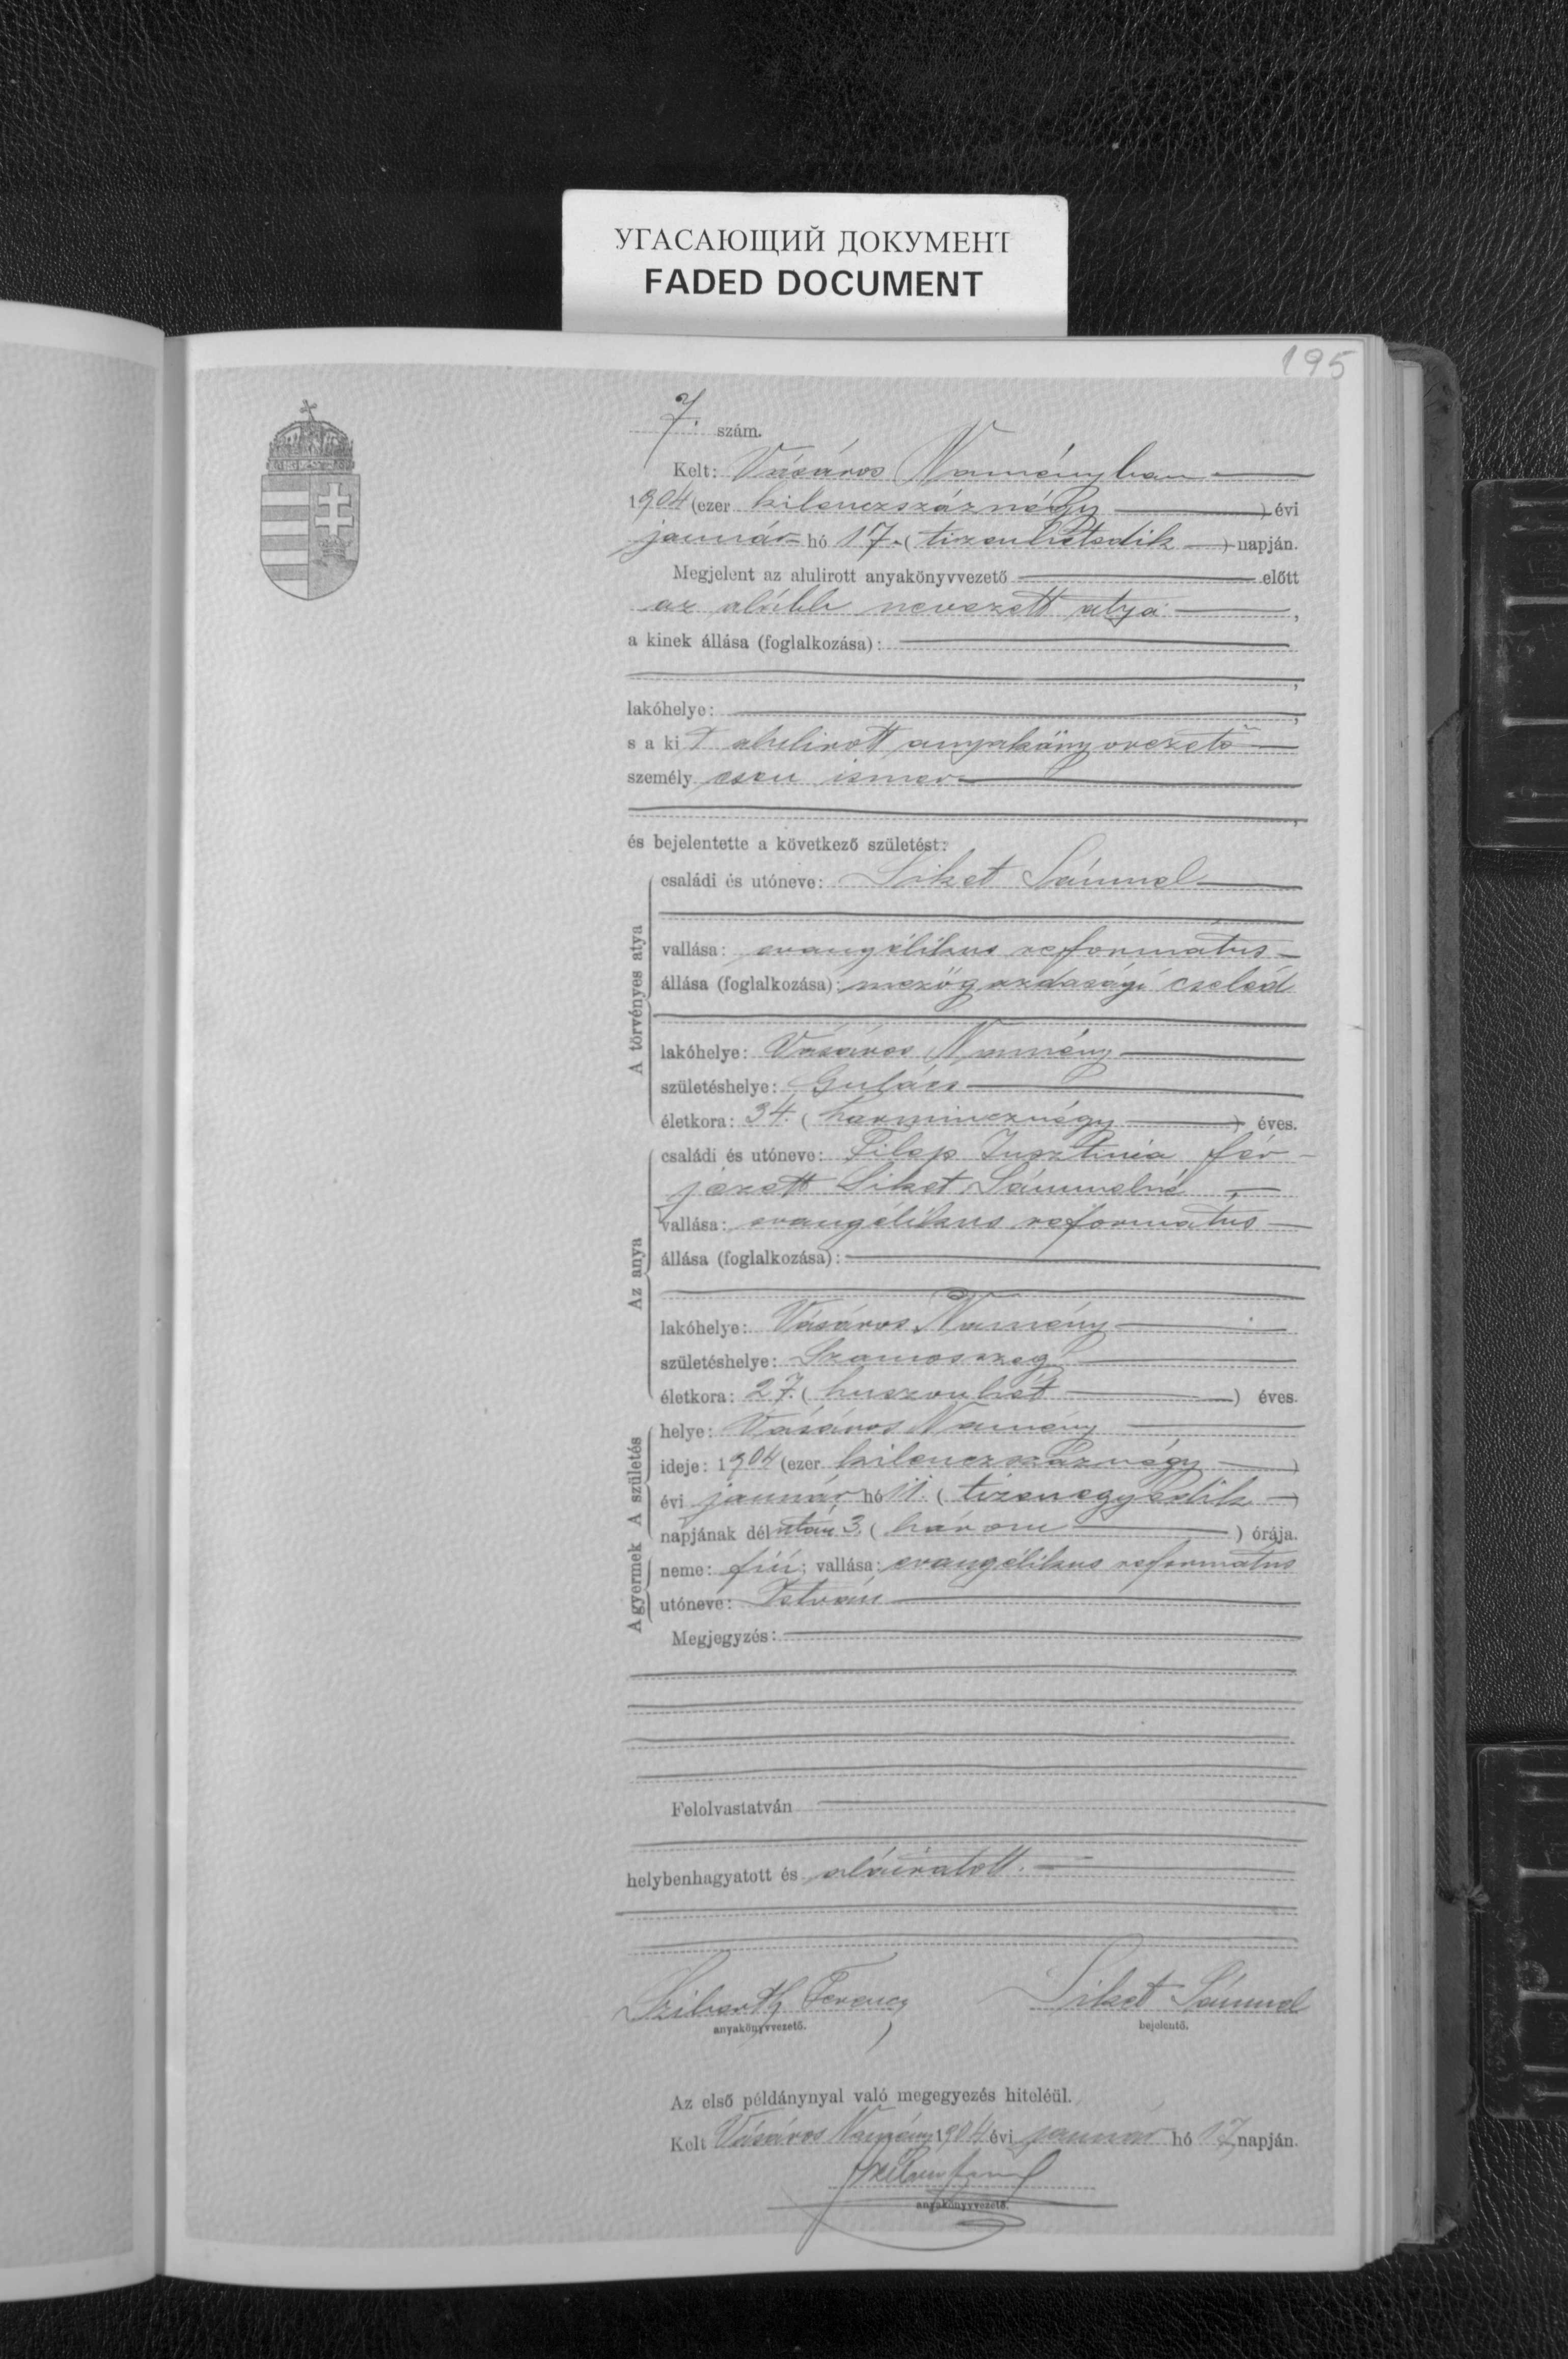 УГАСАЮЩИЙ ДОКУМЕНТ
FADED DOCUMENT
195
7. szám.
Kelt: Vásáros Naményban
1904 (ezer kilenczszáznégy) évi
január hó 17. (tizenhetedik) napján.
Megjelent az alulirott anyakönyvvezető előtt
az alább nevezett atya,
a kinek állása (foglalkozása):
lakóhelye:
s a kit alulirott anyakönyvvezető
személyesen ismer
és bejelentette a következő születést:
A törvényes atya
családi és utóneve: Siket Sámuel
vallása: evangélikus református
állása (foglalkozása): mezőgazdasági cseléd
lakóhelye: Vásáros Namény
születéshelye: Gulács
életkora: 34. (harmincznégy) éves.
Az anya
családi és utóneve: Filep Jusztinia fér-
jezett Siket Sámuelné
vallása: evangélikus református
állása (foglalkozása):
lakóhelye: Vásáros Namény
születéshelye: Szamosszeg
életkora: 27. (huszonhét) éves.
A születés
helye: Vásáros Namény
ideje: 1904 (ezer kilenczszáznégy)
évi január hó 11. (tizenegyedik)
napjának délután 3 (három) órája.
A gyermek
neme: fiú; vallása: evangélikus református
utóneve: István
Megjegyzés:
Felolvastatván
helybenhagyatott és aláiratott.
Ferencz Siket Sámuel
anyakönyvvezető. bejelentő.
Az első példánynyal való megegyezés hiteléül.
Kelt Vásáros Namény 1904 évi január hó 17 napján.
anyakönyvvezető.